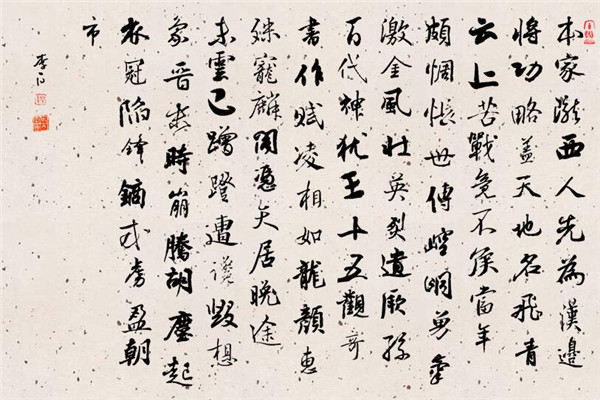 本家隴西人先為漢邊
將功略蓋天地名飛青
云上苦戰竟不侯當年
頗惆悵世傳崆峒勇氣
激金風壯英烈遺厥孫
百代神犹王十五觀奇
書作賦凌相如龍顏惠
殊寵麟閣憑天居晚途
未雲已蹭蹬遭讒毀想
象晉末時崩騰胡塵起
衣冠陷鋒鏑戎虜盈朝
市
李